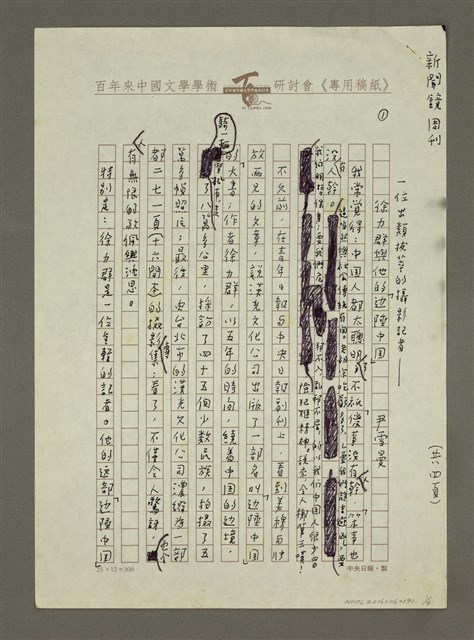 新聞鏡周刊
百年來中國文學學術研討會《專用稿紙》
①
(共四頁)
一位出類拔萃的攝影記者——
徐力群與他的边陲中国
尹雪曼
我常覺得：中国人都太聰明了，不祗優事沒有幹，笨事也
沒人幹。
不久前，在青年日報与中央日報副刊上，看到姜穆与叶
放兩兄的文章，說漢光文化公司出版了一部名叫边陲中国
的大書；作者徐力群，以五年的時间，繞着中国的边境，
騎一輛摩托車走了八萬多公里，採訪了四十五個少数民族，拍攝了五
萬多幀照片；最後，由台北市的漢光文化公司濃縮為一部
都二七一頁(十六開本)的攝影集；看了，不僅令人驚訝，也令人
有無限的欽佩與沈思。
特別是：徐力群是一位年輕的記者。他的这部「边陲中国」
25×12=300
中央日報·製